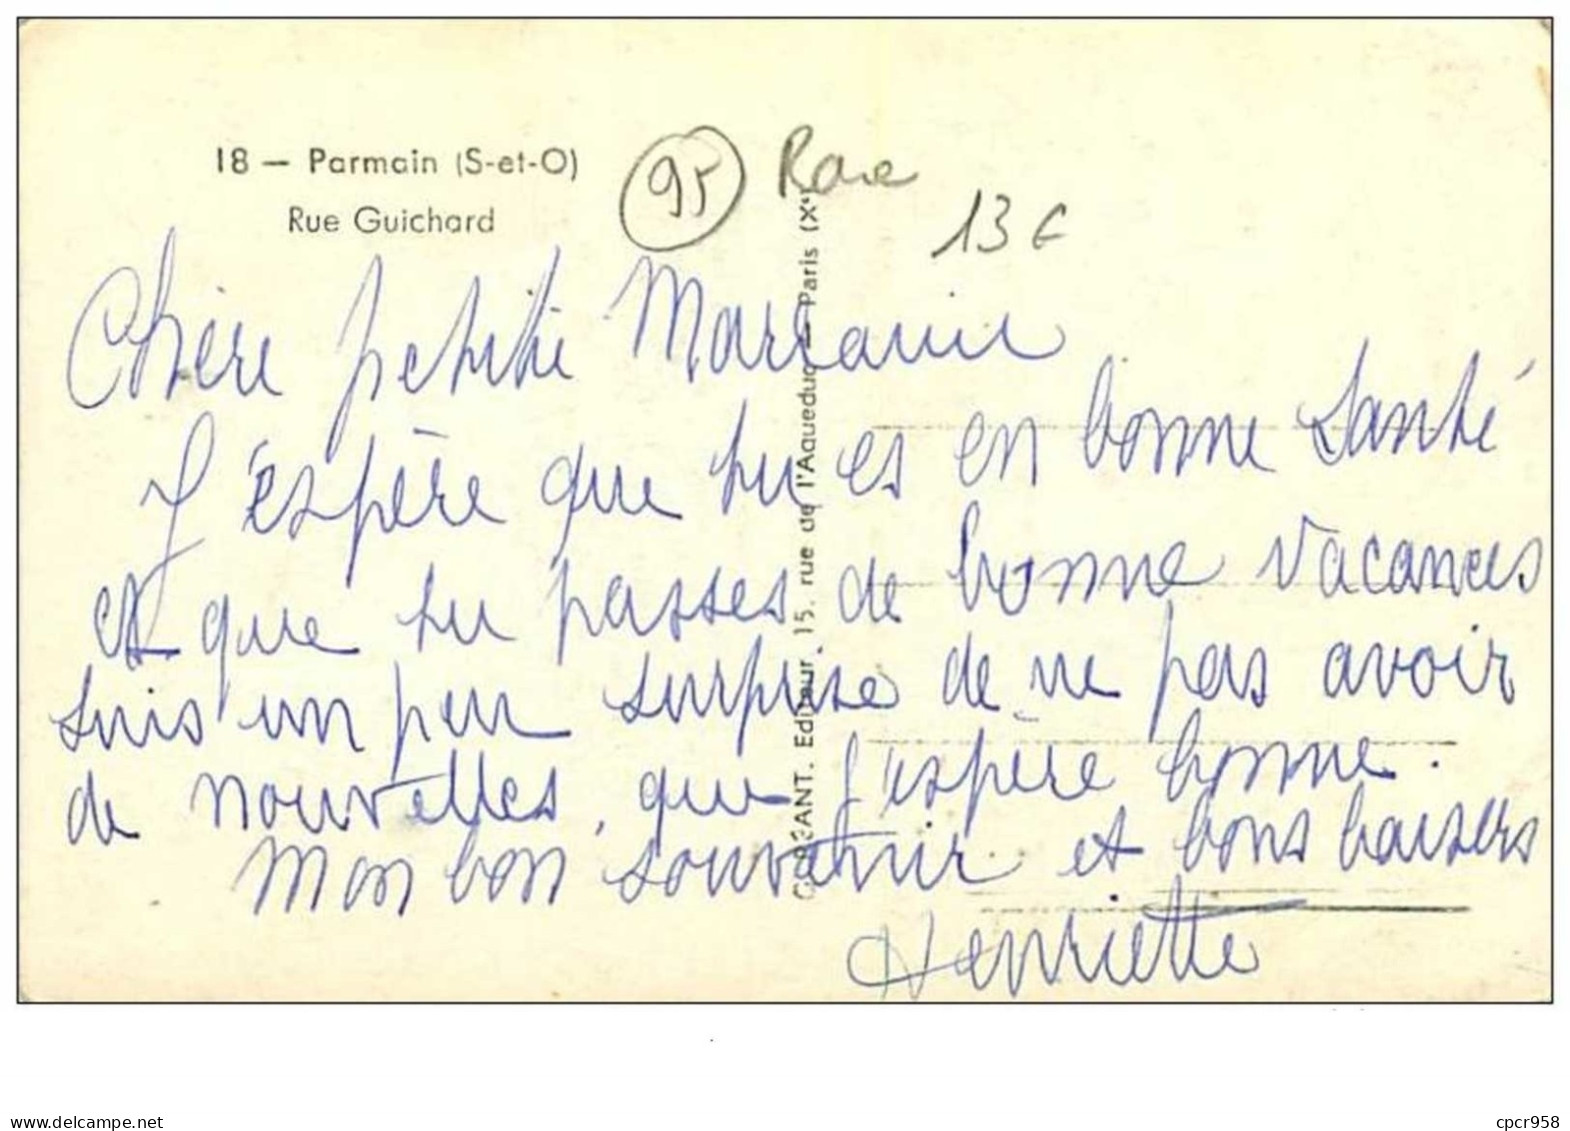 18 — Parmain (S-et-O)
Rue Guichard
95
Rare
13 €
Chère petite
J'espère que tu es en bonne santé
et que tu passes de bonne vacances
suis un peu surprise de ne pas avoir
de nouvelles, que j'espère bonne.
Mon bon souvenir et bons baisers
Henriette
ANT. Editeur, 15, rue de l'Aqueduc — Paris (Xe)
www.delcampe.net
cpcr958